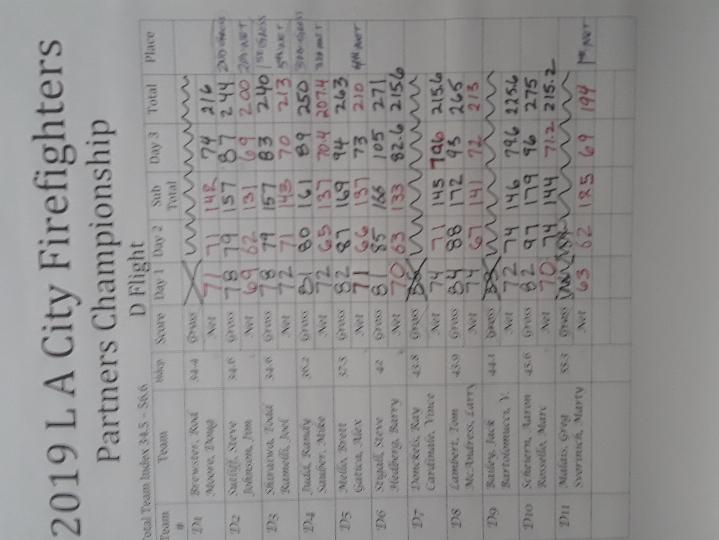 2019 L A City Firefighters
Partners Championship
D Flight
Total Team Index 34.5 - 56.6
Team # Team Hdcp Score Day 1 Day 2 Sub Total Day 3 Total Place
D1 Brewster, Rod 34.4 Gross
Moore, Doug Net 71 71 142 74 216
D2 Sutliff, Steve 34.6 Gross 78 79 157 87 244
Johnson, Jim Net 69 62 131 69 200 2nd NET
D3 Shiraiwa, Todd 34.6 Gross 78 79 157 83 240 1st GROSS
Ramelli, Joel Net 72 71 143 70 213 5th NET
D4 Judd, Randy 36.2 Gross 81 80 161 89 250
Sauber, Mike Net 72 65 137 70.4 207.4 3rd NET
D5 Mello, Brett 37.5 Gross 82 87 169 94 263
Gatica, Alex Net 71 66 137 73 210 4th NET
D6 Stigall, Steve 42 Gross 81 85 166 105 271
Hedberg, Barry Net 70 63 133 82.6 215.6
D7 Donckels, Ray 43.8 Gross
Cardinale, Vince Net 74 71 145 70.6 215.6
D8 Lambert, Tom 43.9 Gross 84 88 172 93 265
McAndress, Larry Net 74 67 141 72 213
D9 Bailey, Jack 44.1 Gross
Bartolomucci, V. Net 72 74 146 79.6 225.6
D10 Scheuern, Aaron 45.6 Gross 82 97 179 96 275
Rossello, Marc Net 70 74 144 71.2 215.2
D11 Malais, Greg 55.3 Gross
Svormich, Marty Net 63 62 125 69 194 1st NET